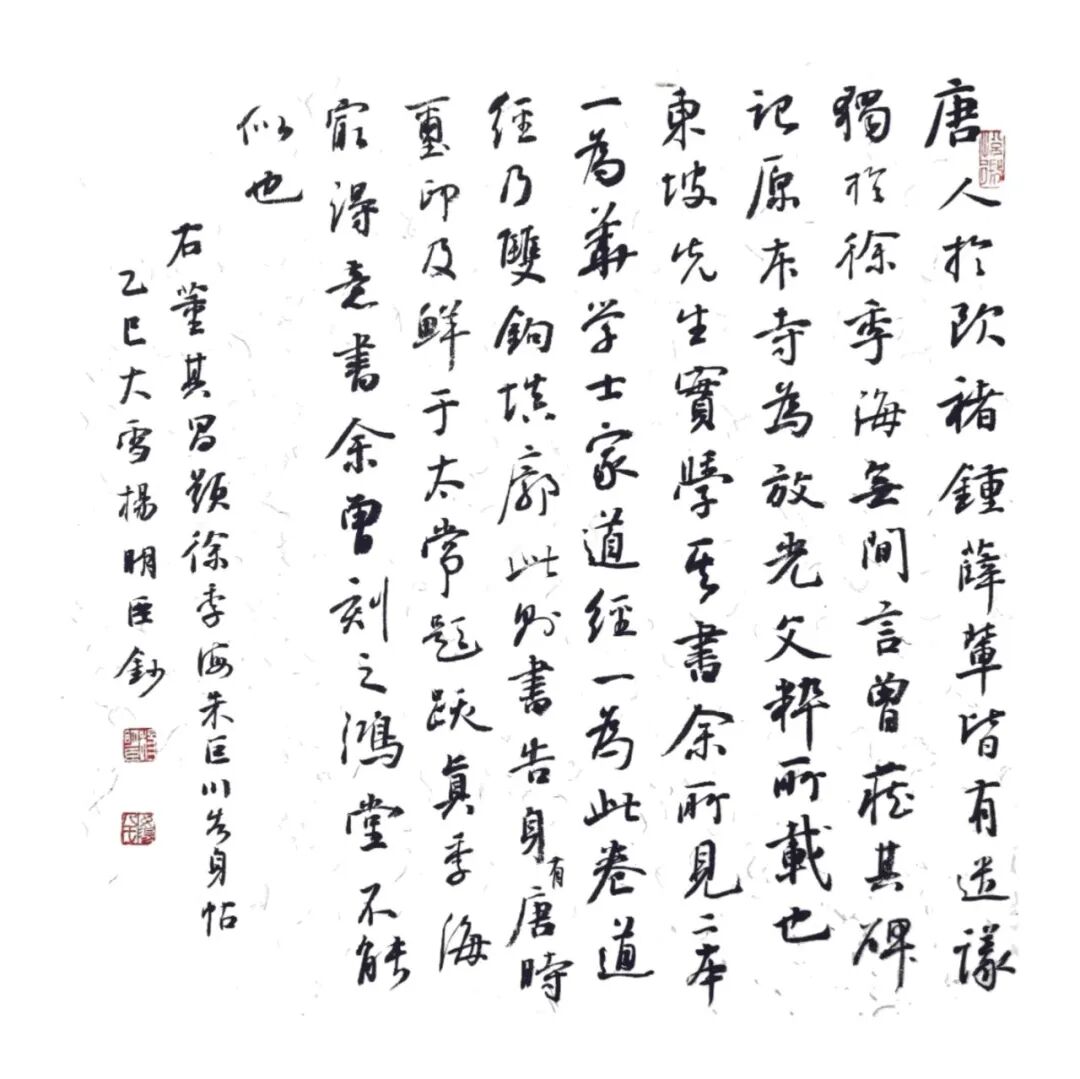 唐人於欧褚鍾薛輩皆有送議
獨於徐季海無間言曾藏其碑
記原本寺為放光文粹所載也
東坡先生實學其書余所見二本
一為華学士家道經一為此卷道
經乃雙鉤填廓此则書告身有唐時
璽印及鮮于太常題跋真季海
最得意書余曾刻之鴻堂不能
似也
右董其昌题徐季海朱巨川告身帖
乙巳大雪楊明臣鈔